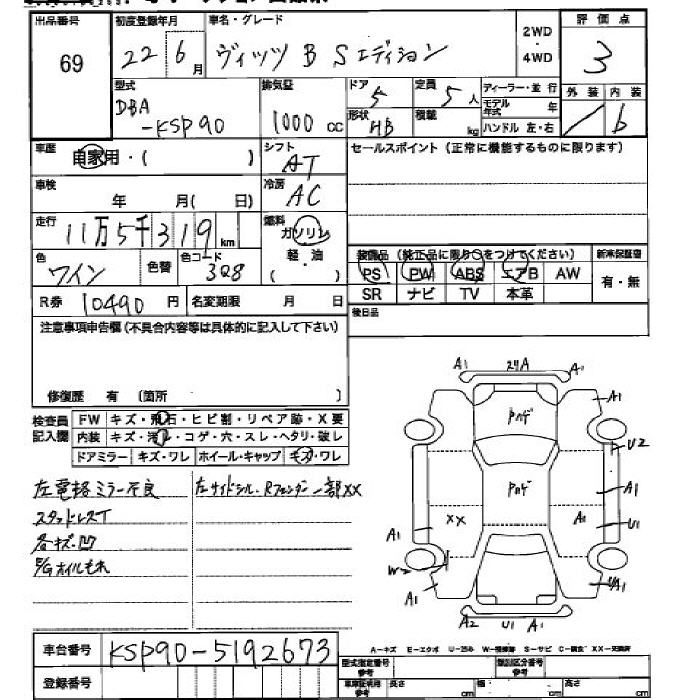 出品番号 初度登録年月 車名・グレード 2WD・4WD 評価点
69 22 6月 ヴィッツ B Sエディション 3
型式 排気量 ドア 定員 ディーラー・並行 外装 内装
DBA-KSP90 1000cc 5 5人 モデル年式 年 b
形状 HB 積載 kg ハンドル 左・右
車歴 自家用・( ) シフト AT セールスポイント(正常に機能するものに限ります)
車検 年 月( 日) 冷房 AC
走行 11万5千319km 燃料 ガソリン
軽・油
( )
色 ワイン 色替 色コード 3Q8
装備品(純正品に限り○をつけてください) 新車保証書
PS PW ABS エアB AW 有・無
SR ナビ TV 本革
R券 10490円 名変期限 月 日 後日品
注意事項申告欄(不具合内容等は具体的に記入して下さい)
修復歴 有 〔箇所 〕
検査員記入欄 FW キズ・飛石・ヒビ割・リペア跡・X要
内装 キズ・汚レ・コゲ・穴・スレ・ヘタリ・破レ
ドアミラー キズ・ワレ ホイール・キャップ キズ・ワレ
左電格ミラー不良 左サイドシル・Rフェンダー一部XX
スタッドレスT
各キズ・凹
A1 A1
A1
ハゲ
U2
ハゲ
A1
XX A1 U1
A1
W
A1 UA1
A2 U1 A1
A-キズ E-エクボ U-凹み W-補修跡 S-サビ C-腐食 XX-交換済
車台番号 KSP90-5192673
型式指定番号参考 類別区分番号参考
登録番号
車庫証明用参考 長さ cm 幅 cm 高さ cm